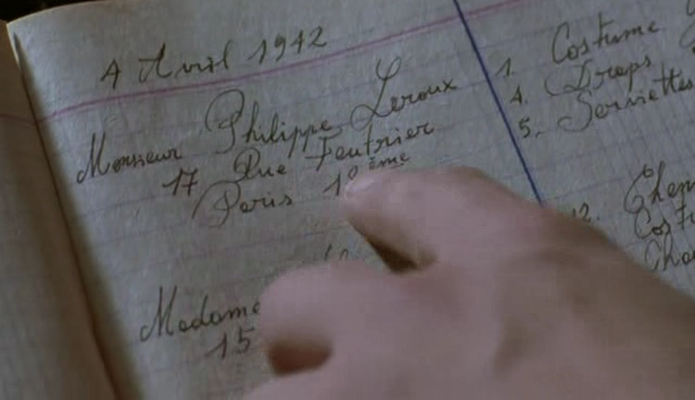 4 Avril 1942
Monsieur Philippe Leroux
17 Rue Feutrier
Paris 18ème
Madame
15
1. Costume
4. Draps
5. Serviettes
12.